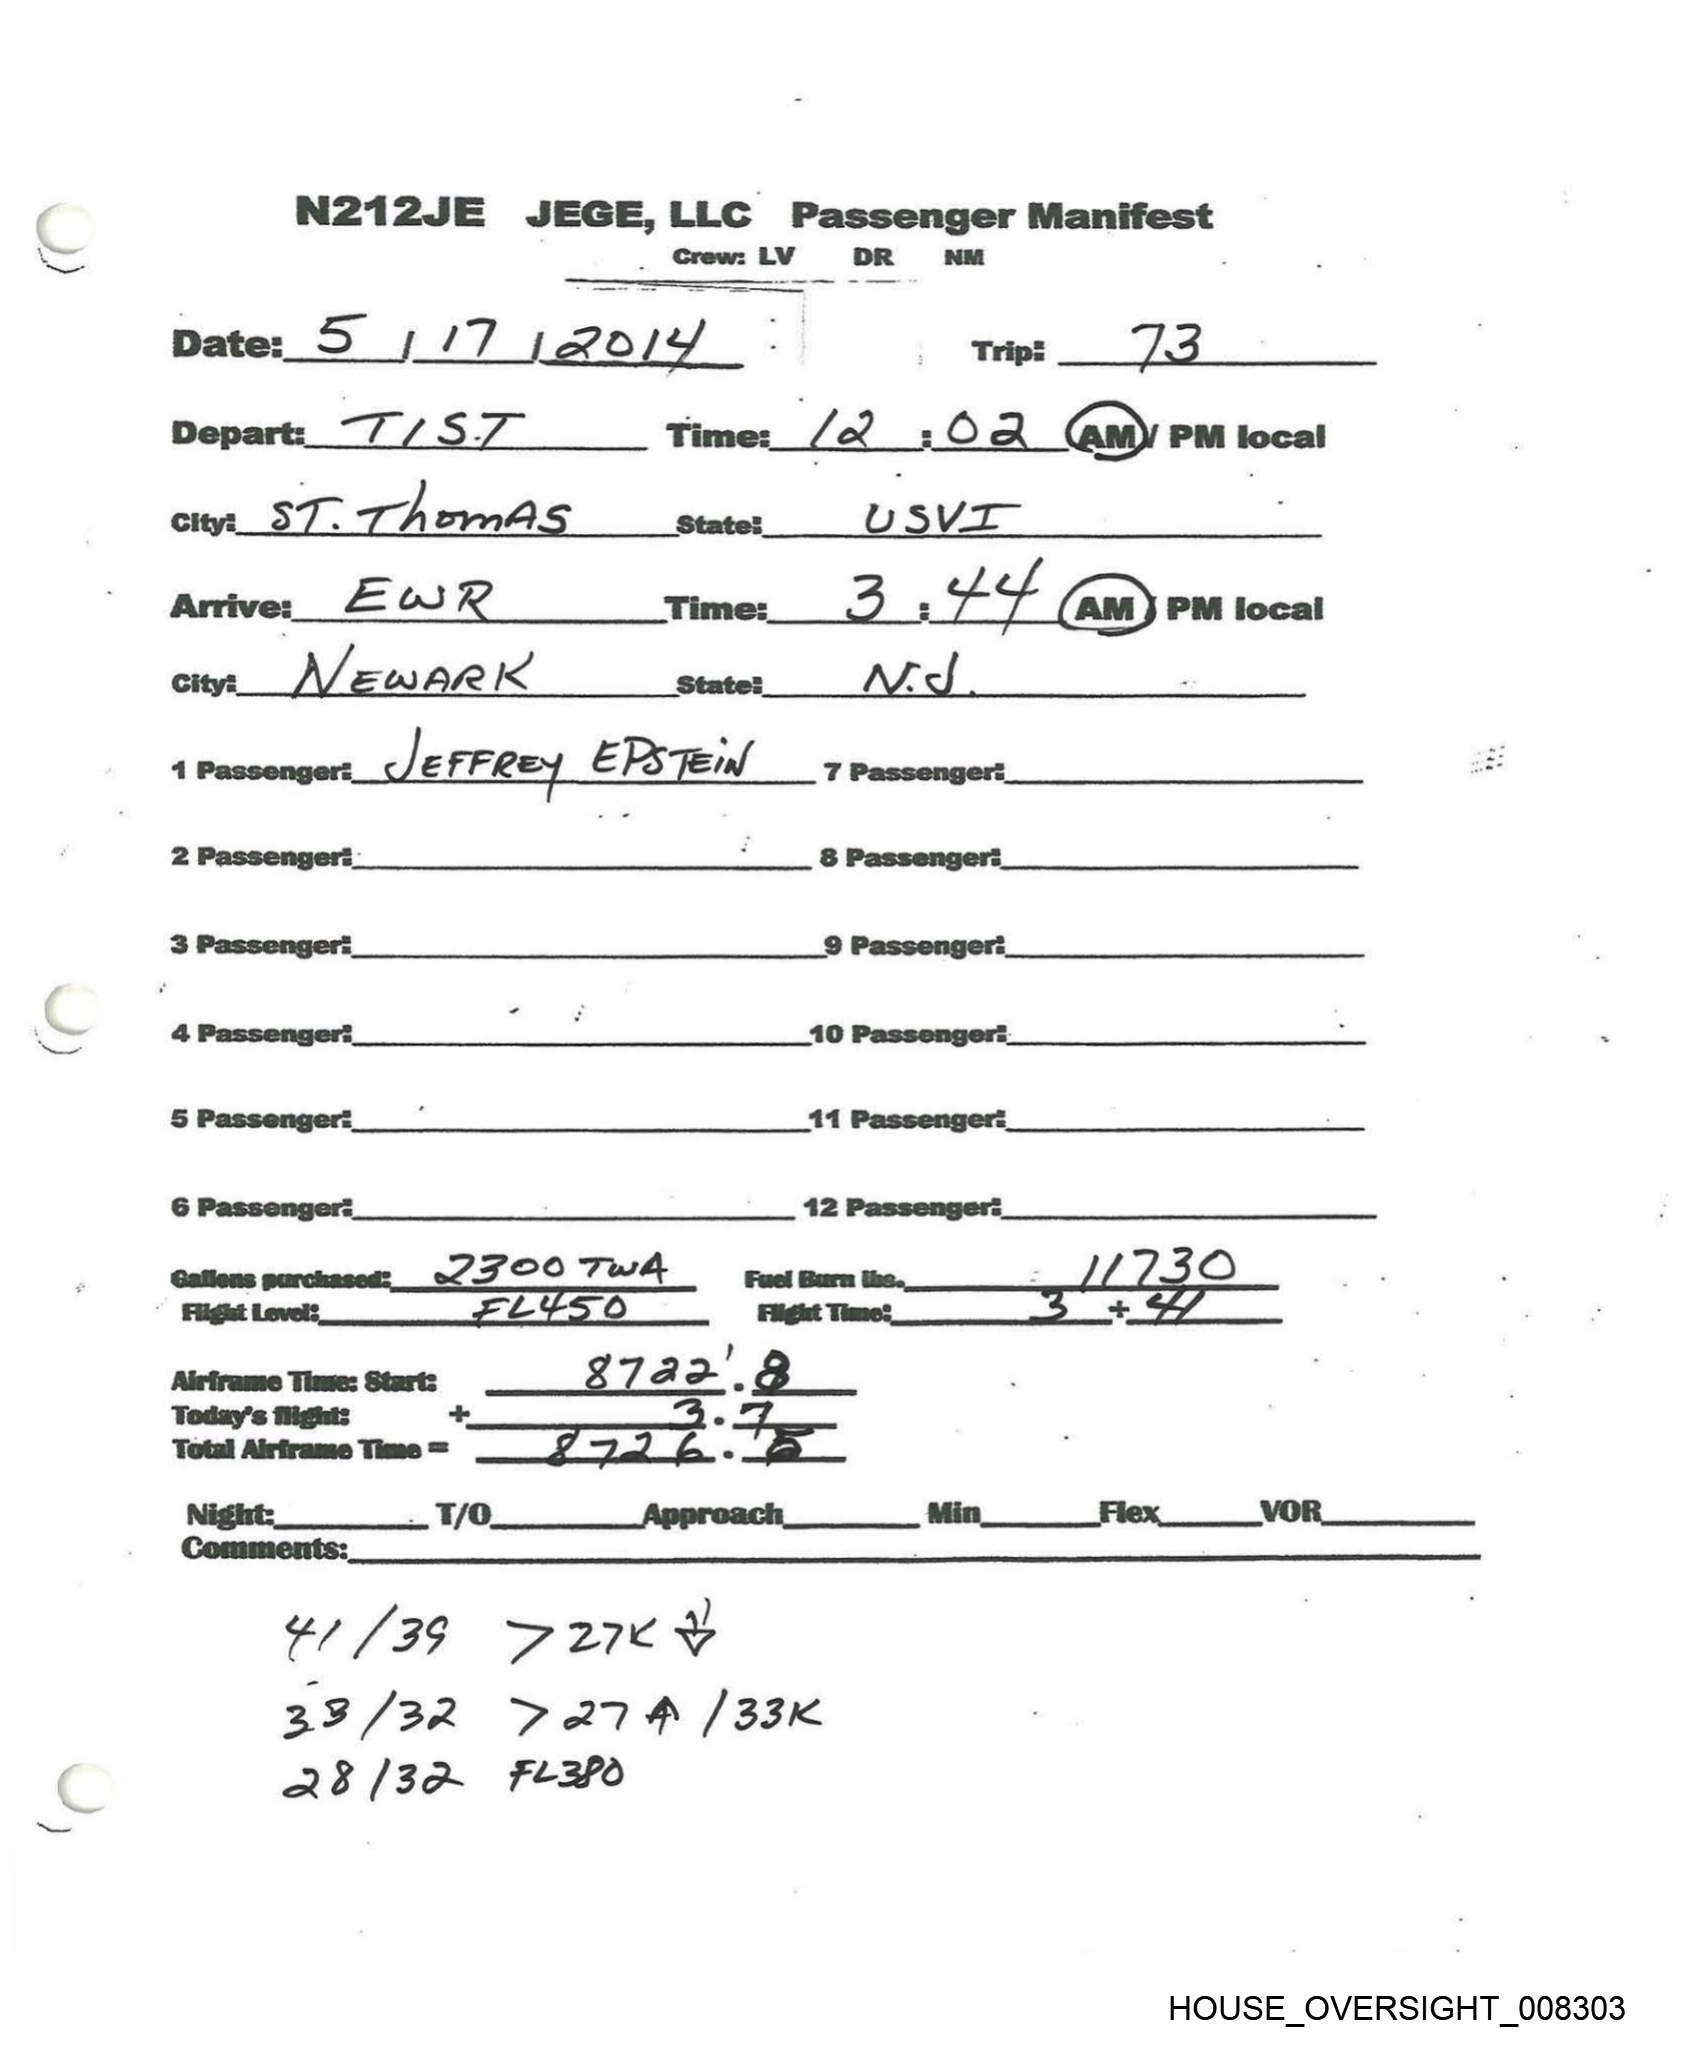 N212JE JEGE, LLC Passenger Manifest
Crew: LV DR NM
Date: 5 / 17 / 2014 Trip: 73
Depart: TIST Time: 12 : 02 AM / PM local
City: ST. ThomAS State: USVI
Arrive: EWR Time: 3 : 44 AM / PM local
City: NEWARK State: N.J.
1 Passenger: JEFFREY EPSTEIN 7 Passenger:
2 Passenger: 8 Passenger:
3 Passenger: 9 Passenger:
4 Passenger: 10 Passenger:
5 Passenger: 11 Passenger:
6 Passenger: 12 Passenger:
Gallons purchased: 2300 TWA Fuel Burn lbs. 11730
Flight Level: FL450 Flight Time: 3 + 41
Airframe Time: Start: 8722.8
Today's flight: + 3.7
Total Airframe Time = 8726.5
Night: T/O Approach Min Flex VOR
Comments:
41/39 >27K ↓
33/32 >27 ↑ /33K
28/32 FL380
HOUSE_OVERSIGHT_008303